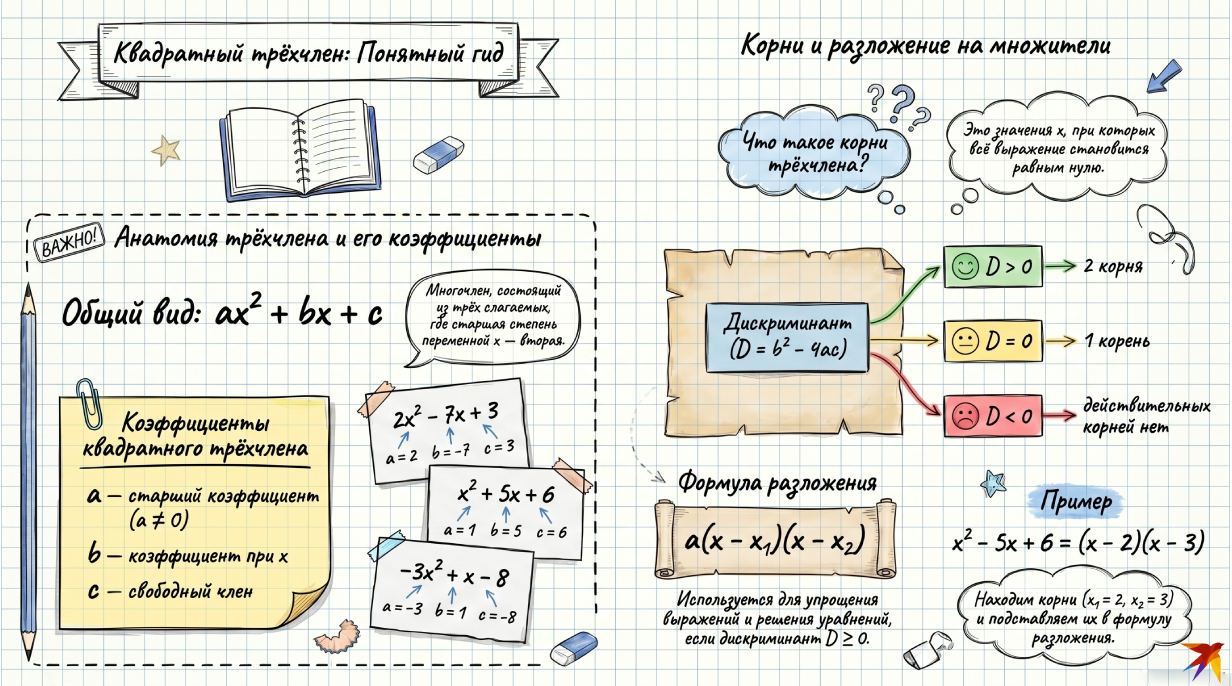 Квадратный трёхчлен: Понятный гид
ВАЖНО!
Анатомия трёхчлена и его коэффициенты
Общий вид: ax² + bx + c
Многочлен, состоящий
из трёх слагаемых,
где старшая степень
переменной x — вторая.
Коэффициенты
квадратного трёхчлена
a — старший коэффициент
(a ≠ 0)
b — коэффициент при x
c — свободный член
2x² − 7x + 3
a=2 b=-7 c=3
x² + 5x + 6
a=1 b=5 c=6
−3x² + x − 8
a=-3 b=1 c=-8
Корни и разложение на множители
???
Что такое корни
трёхчлена?
Это значения x, при которых
всё выражение становится
равным нулю.
Дискриминант
(D = b² − 4ac)
D > 0
2 корня
D = 0
1 корень
D < 0
действительных
корней нет
Формула разложения
a(x − x₁)(x − x₂)
Используется для упрощения
выражений и решения уравнений,
если дискриминант D ≥ 0.
Пример
x² − 5x + 6 = (x − 2)(x − 3)
Находим корни (x₁ = 2, x₂ = 3)
и подставляем их в формулу
разложения.